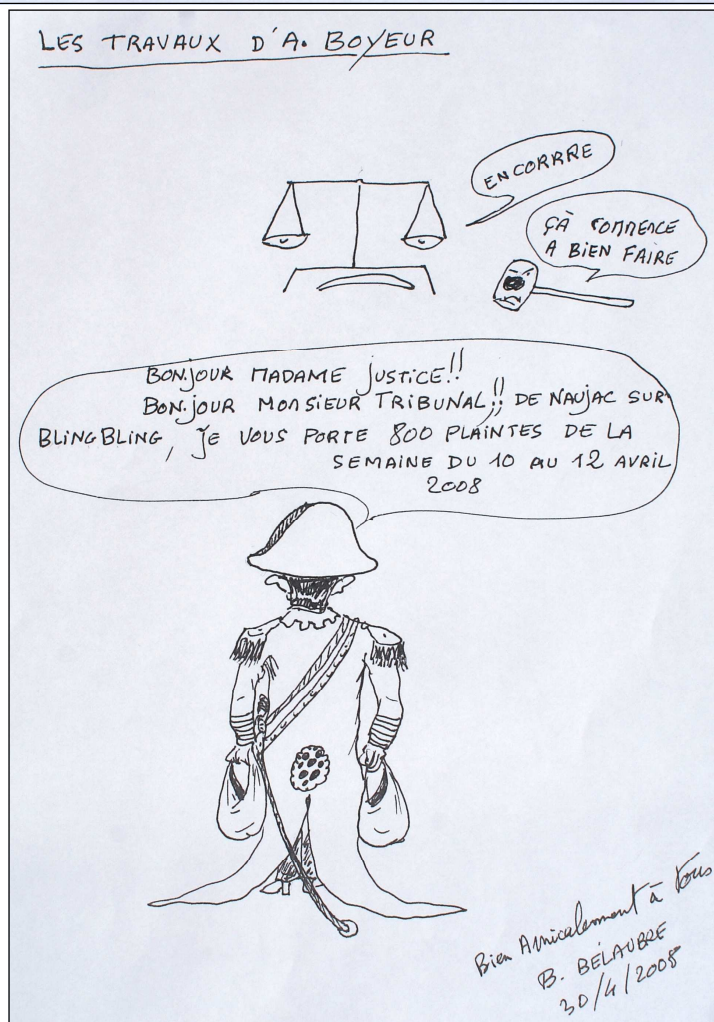 LES TRAVAUX D'A. BOYEUR
ENCORRRE
ÇÀ COMMENCE
A BIEN FAIRE
BONJOUR MADAME JUSTICE!!
BONJOUR MONSIEUR TRIBUNAL!! DE NAUJAC SUR
BLINGBLING, JE VOUS PORTE 800 PLAINTES DE LA
SEMAINE DU 10 AU 12 AVRIL
2008
Bien Amicalement à tous
B. BÉLAUBRE
30/4/2008